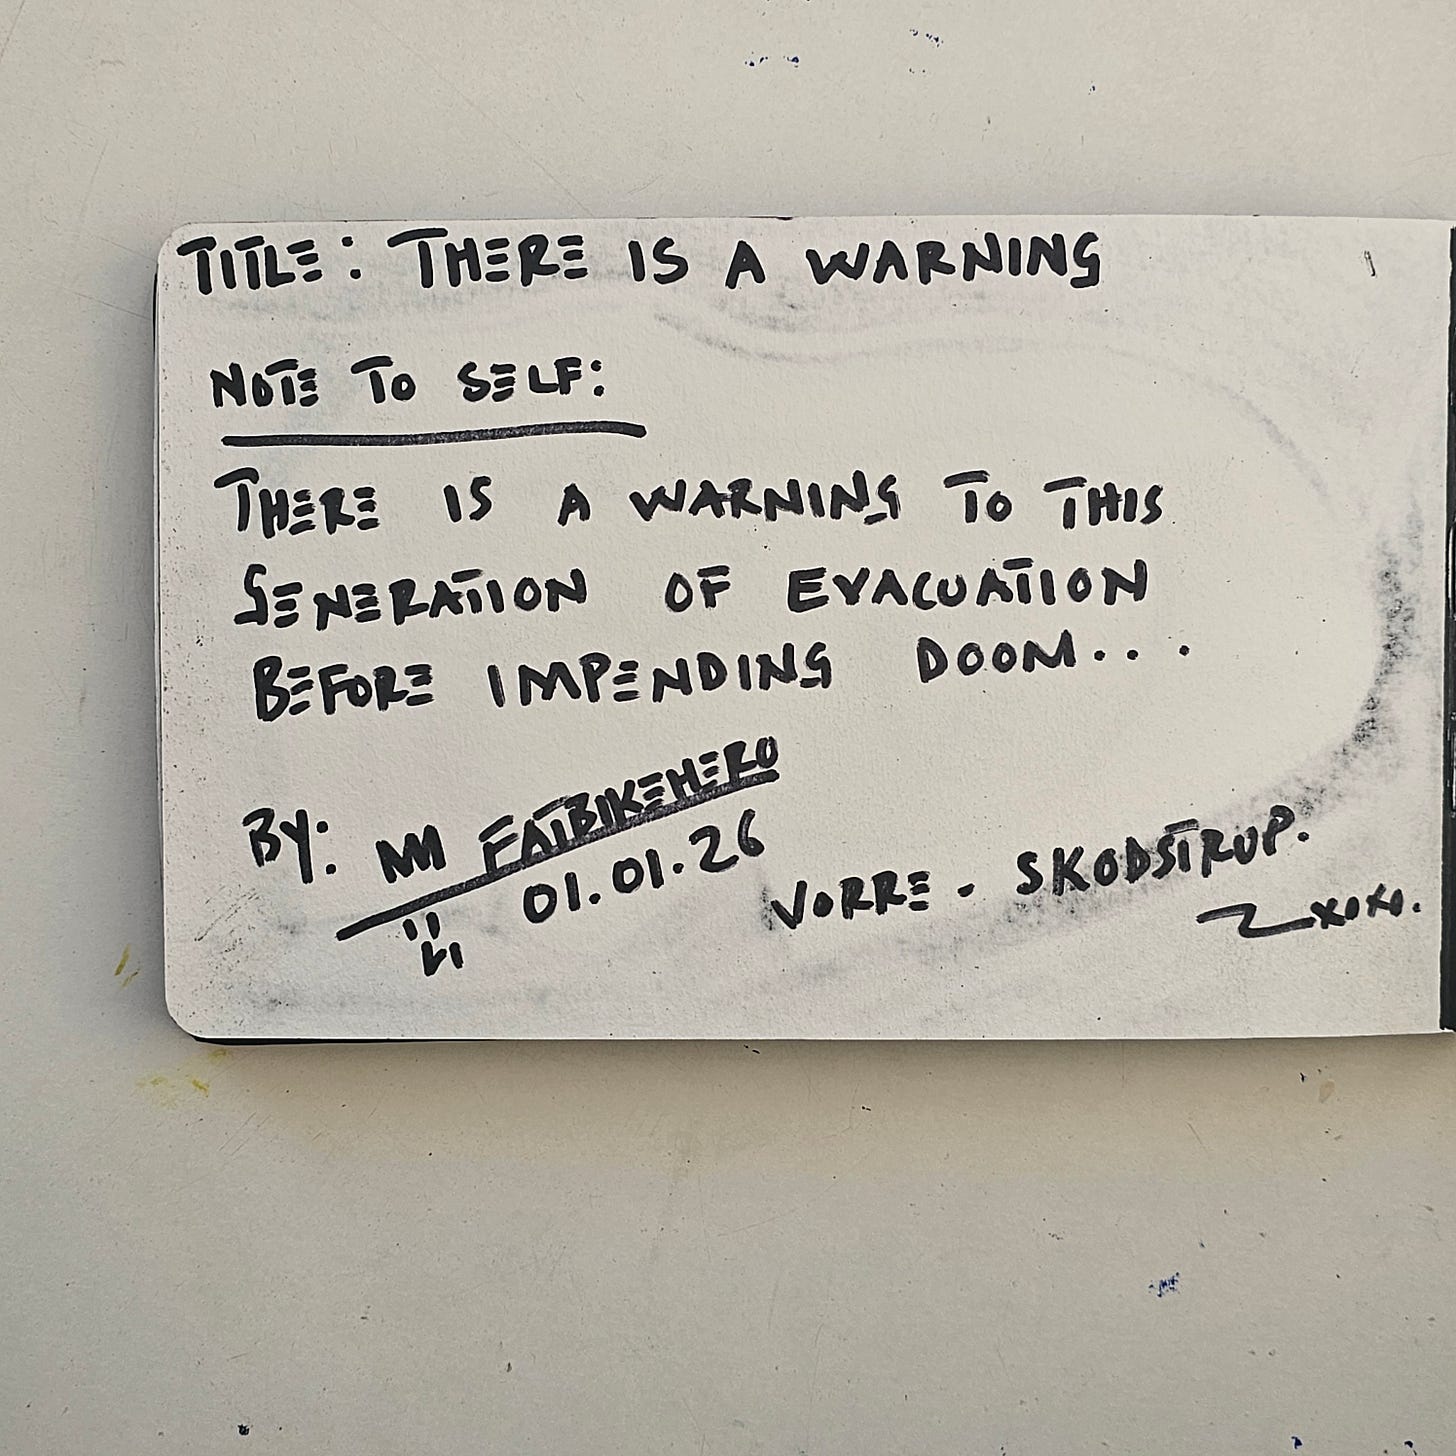 TITLE: THERE IS A WARNING
NOTE TO SELF:
THERE IS A WARNING TO THIS
GENERATION OF EVACUATION
BEFORE IMPENDING DOOM...
BY: FATBIKEHERO
01.01.26
VORRE. SKODSTRUP.
xoxo.